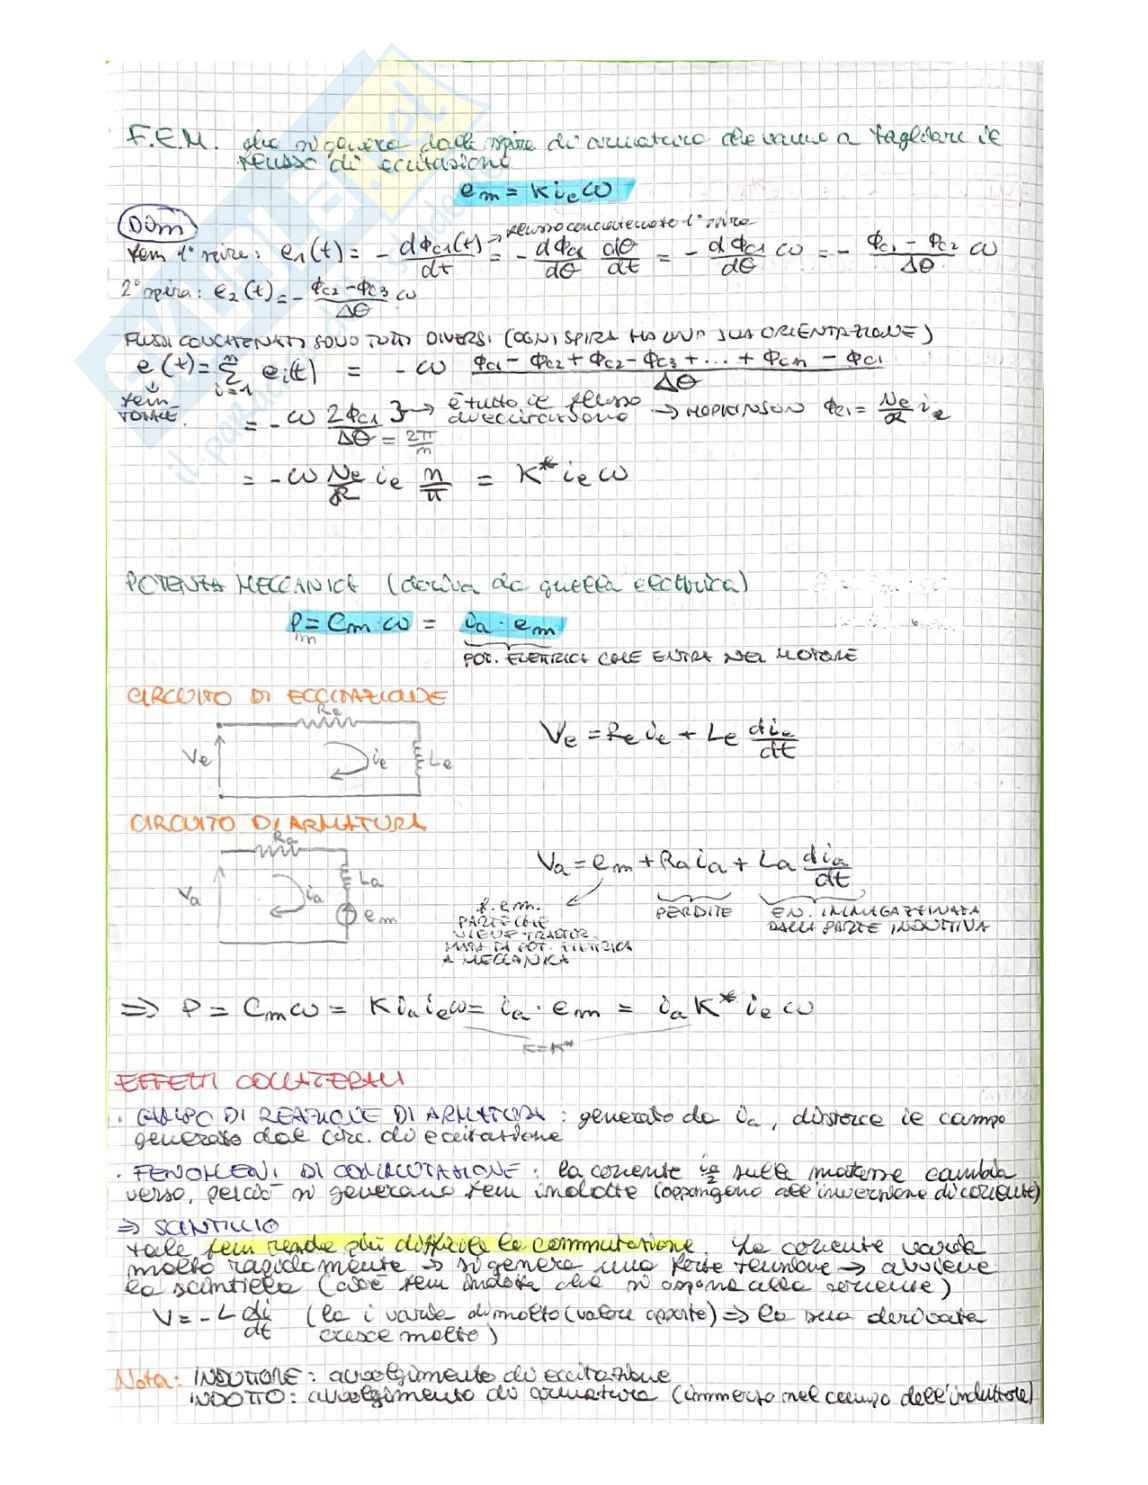 F.E.M. che si genera dalle spire di armatura che vanno a tagliare il
flusso di eccitazione
em = K ie ω
Dim
fem 1° spira: e1(t) = - dΦc1(t)/dt = - dΦc1/dθ dθ/dt = - dΦc1/dθ ω = - (Φc1 - Φc2)/Δθ ω
→ flusso concatenato 1° spira
2° spira: e2(t) = - (Φc2 - Φc3)/Δθ ω
FLUSSI CONCATENATI SONO TUTTI DIVERSI (OGNI SPIRA HA UNA SUA ORIENTAZIONE)
e(t) = Σ i=1 n ei(t) = - ω (Φc1 - Φc2 + Φc2 - Φc3 + ... + Φcn - Φc1)/Δθ
↓ fem TOTALE
= - ω 2Φc1/Δθ = 2π/n } → è tutto il flusso di eccitazione → HOPKINSON Φc1 = Ne/R ie
= - ω Ne/R ie n/π = K* ie ω
POTENZA MECCANICA (deriva da quella elettrica)
Pm = Cm · ω = ia · em
POT. ELETTRICA CHE ENTRA NEL MOTORE
CIRCUITO DI ECCITAZIONE
Re
Ve ie Le
Ve = Re ie + Le die/dt
CIRCUITO DI ARMATURA
Ra
Va ia La em
Va = em + Ra ia + La dia/dt
f.e.m.
PARTE CHE
VIENE TRASFOR.
MATA DA POT. ELETTRICA
A MECCANICA
PERDITE
EN. IMMAGAZZINATA
DALLA PARTE INDUTTIVA
=> P = Cm ω = K ia ie ω = ia · em = ia K* ie ω
K = K*
EFFETTI COLLATERALI
· CAMPO DI REAZIONE DI ARMATURA : generato da ia, distorce il campo
generato dal circ. di eccitazione
· FENOMENI DI COMMUTAZIONE : la corrente ia/2 sulle matasse cambia
verso, perciò si generano fem indotte (oppongono all'inversione di corrente)
=> SCINTILLIO
tale fem rende più difficile la commutazione. La corrente varia
molto rapidamente → si genera una forte tensione → avviene
la scintilla (cioè fem indotta che si oppone alla corrente)
V = - L di/dt (la i varia di molto (valore opposte) => la sua derivata
cresce molto)
Nota: INDUTTORE : avvolgimento di eccitazione
INDOTTO : avvolgimento di armatura (immerso nel campo dell'induttore)